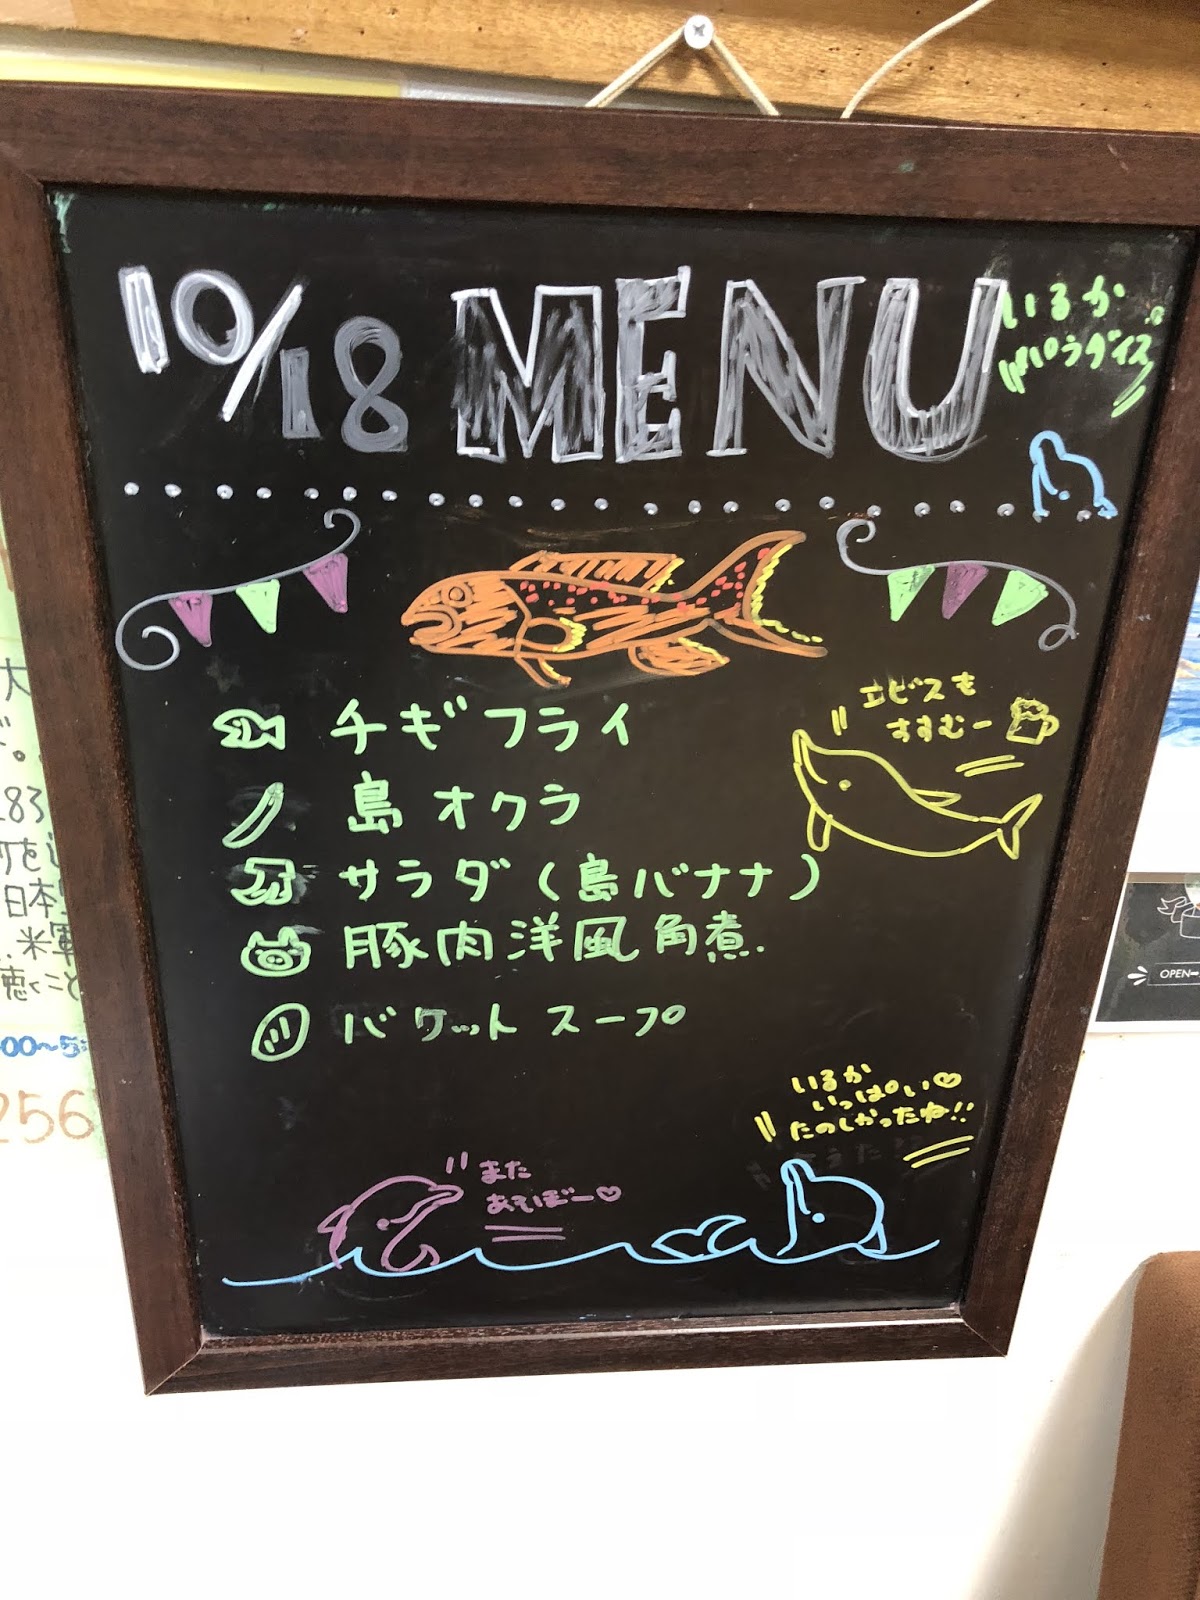 10/18 MENU
いるか
パラダイス
エビスも
すすむー
チギフライ
島オクラ
サラダ(島バナナ)
豚肉洋風角煮.
バケットスープ
いるか
いっぱい♡
たのしかったね!!
また
あそぼー♡
大
283
日本
米軍
聴くこと
00~5:
256
OPEN